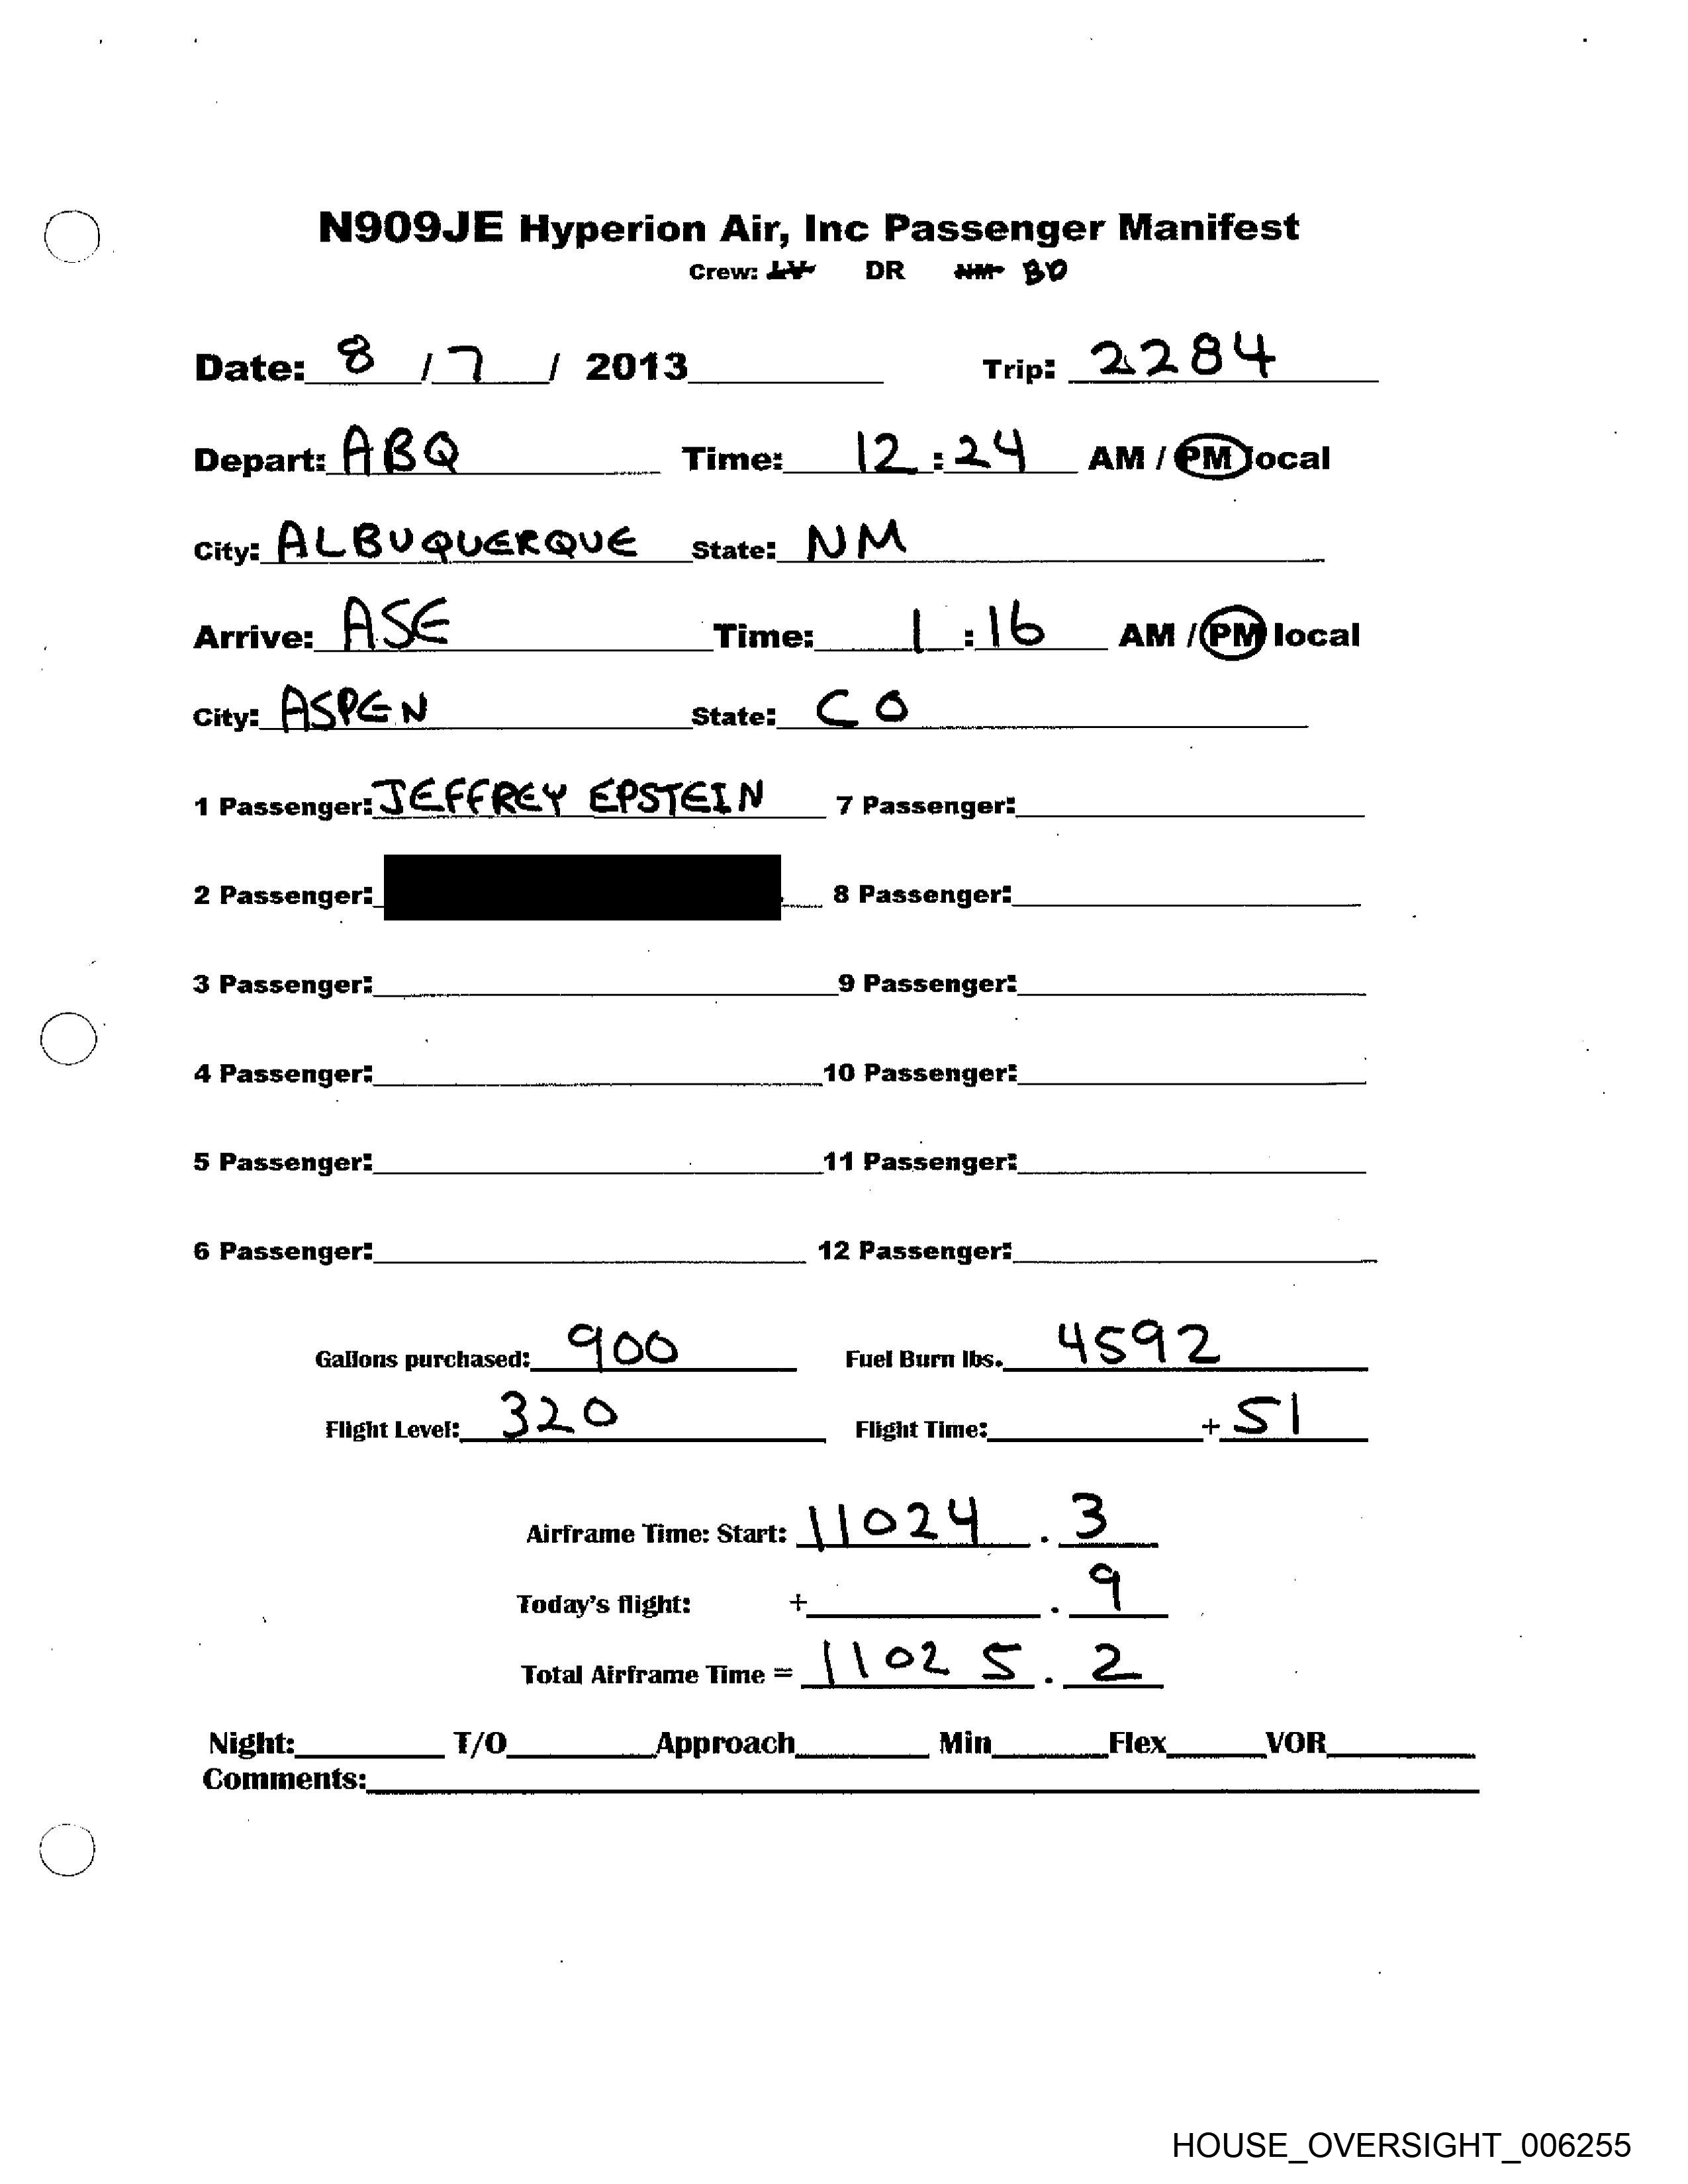 N909JE Hyperion Air, Inc Passenger Manifest
Crew: LV DR NM BD
Date: 8 / 7 / 2013 Trip: 2284
Depart: ABQ Time: 12:24 AM / PM local
City: ALBUQUERQUE State: NM
Arrive: ASE Time: 1:16 AM / PM local
City: ASPEN State: CO
1 Passenger: JEFFREY EPSTEIN 7 Passenger:
2 Passenger: 8 Passenger:
3 Passenger: 9 Passenger:
4 Passenger: 10 Passenger:
5 Passenger: 11 Passenger:
6 Passenger: 12 Passenger:
Gallons purchased: 900 Fuel Burn lbs. 4592
Flight Level: 320 Flight Time: + 51
Airframe Time: Start: 11024 . 3
Today's flight: + . 9
Total Airframe Time = 11025 . 2
Night: T/O Approach Min Flex VOR
Comments:
HOUSE_OVERSIGHT_006255